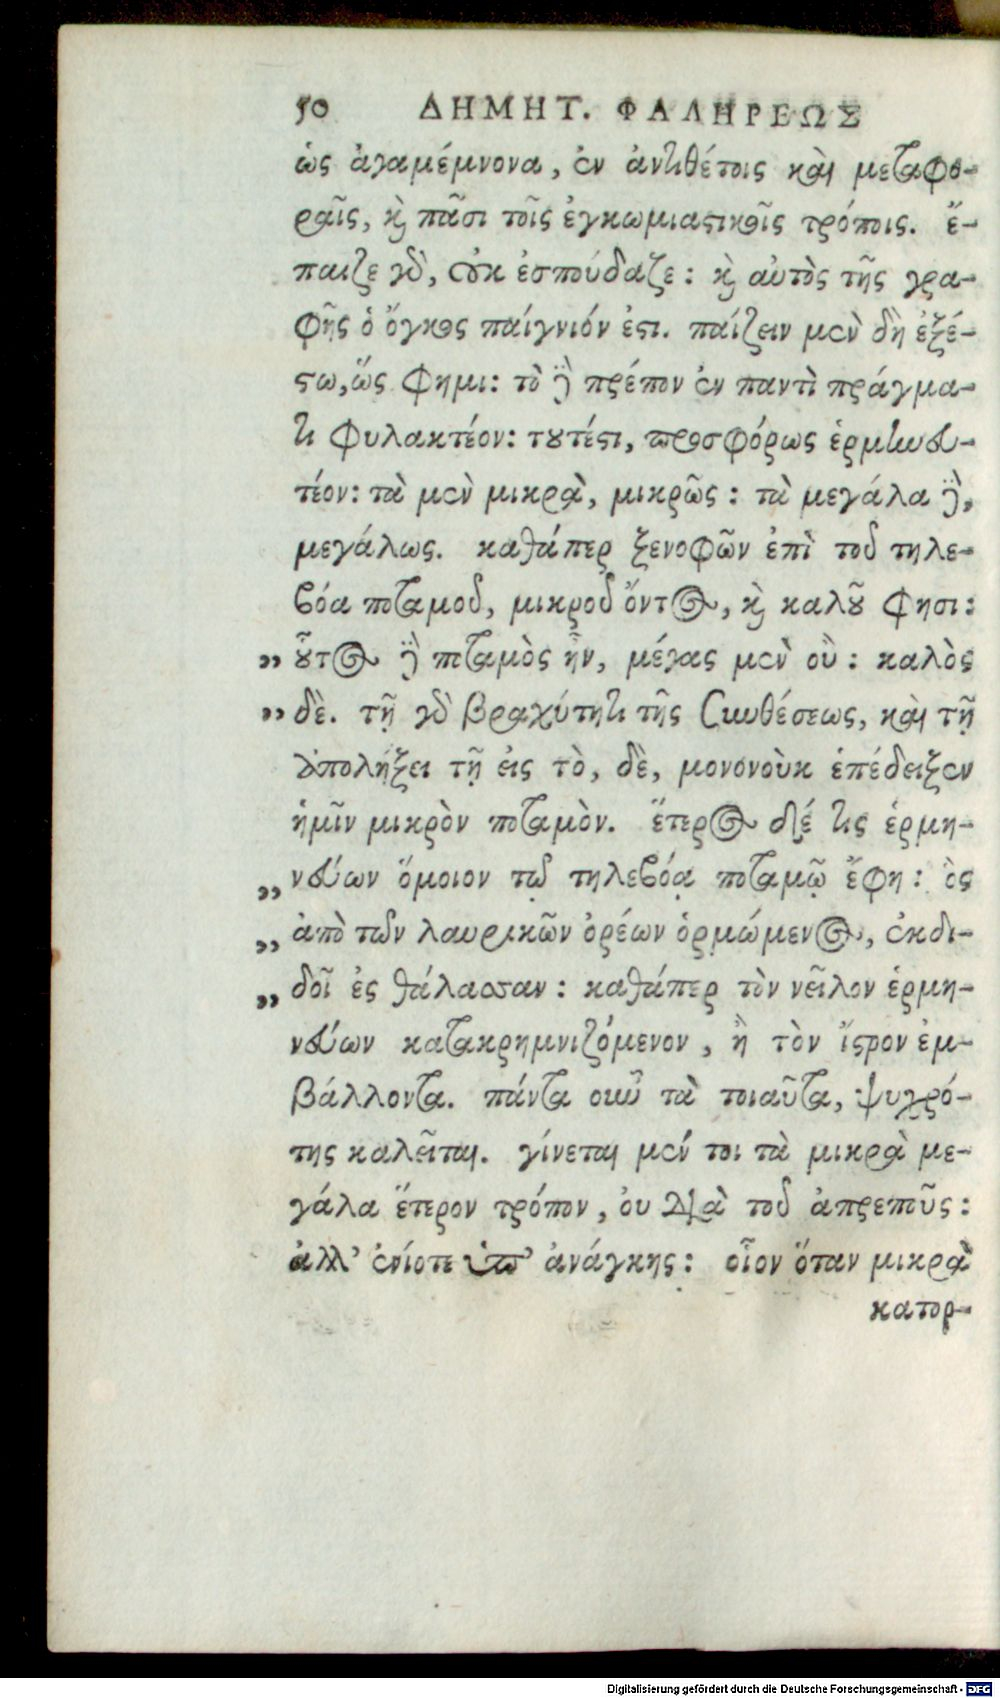 50 ΔΗΜΗΤ. ΦΑΛΗΡΕΩΣ
ὡς ἀγαμέμνονα, ἐν ἀντιθέτοις καὶ μεταφο-
ραῖς, καὶ πᾶσι τοῖς ἐγκωμιαστικοῖς τρόποις. ἔ-
παιζε γὰρ, οὐκ ἐσπούδαζε: καὶ αὐτὸς τῆς γρα-
φῆς ὁ ὄγκος παίγνιόν ἐστι. παίζειν μὲν δὴ ἐξέ-
στω, ὥς φημι: τὸ δὲ πρέπον ἐν παντὶ πράγμα-
τι φυλακτέον: τουτέστι, προσφόρως ἑρμηνευ-
τέον: τὰ μὲν μικρὰ, μικρῶς: τὰ μεγάλα δὲ,
μεγάλως. καθάπερ ξενοφῶν ἐπὶ τοῦ τηλε-
βόα ποταμοῦ, μικροῦ ὄντος, καὶ καλοῦ φησι:
„ οὗτος δὲ ποταμὸς ἦν, μέγας μὲν οὒ: καλὸς
„ δὲ. τῇ γὰρ βραχύτητι τῆς συνθέσεως, καὶ τῇ
ἀπολήξει τῇ εἰς τὸ, δὲ, μονονοὺκ ἐπέδειξεν
ἡμῖν μικρὸν ποταμὸν. ἕτερος δέ τις ἑρμη-
„ νεύων ὅμοιον τῷ τηλεβόᾳ ποταμῷ ἔφη: ὃς
„ ἀπὸ τῶν λαυρικῶν ὀρέων ὁρμώμενος, ἐκδι-
„ δοῖ ἐς θάλασσαν: καθάπερ τὸν νεῖλον ἑρμη-
νεύων κατακρημνιζόμενον, ἢ τὸν ἴστρον ἐμ-
βάλλοντα. πάντα οὖν τὰ τοιαῦτα, ψυχρό-
της καλεῖται. γίνεται μέν τοι τὰ μικρὰ με-
γάλα ἕτερον τρόπον, οὐ διὰ τοῦ ἀπρεποῦς:
ἀλλ’ ἐνίοτε ὑπ’ ἀνάγκης: οἷον ὅταν μικρὰ
κατορ-
Digitalisierung gefördert durch die Deutsche Forschungsgemeinschaft - DFG